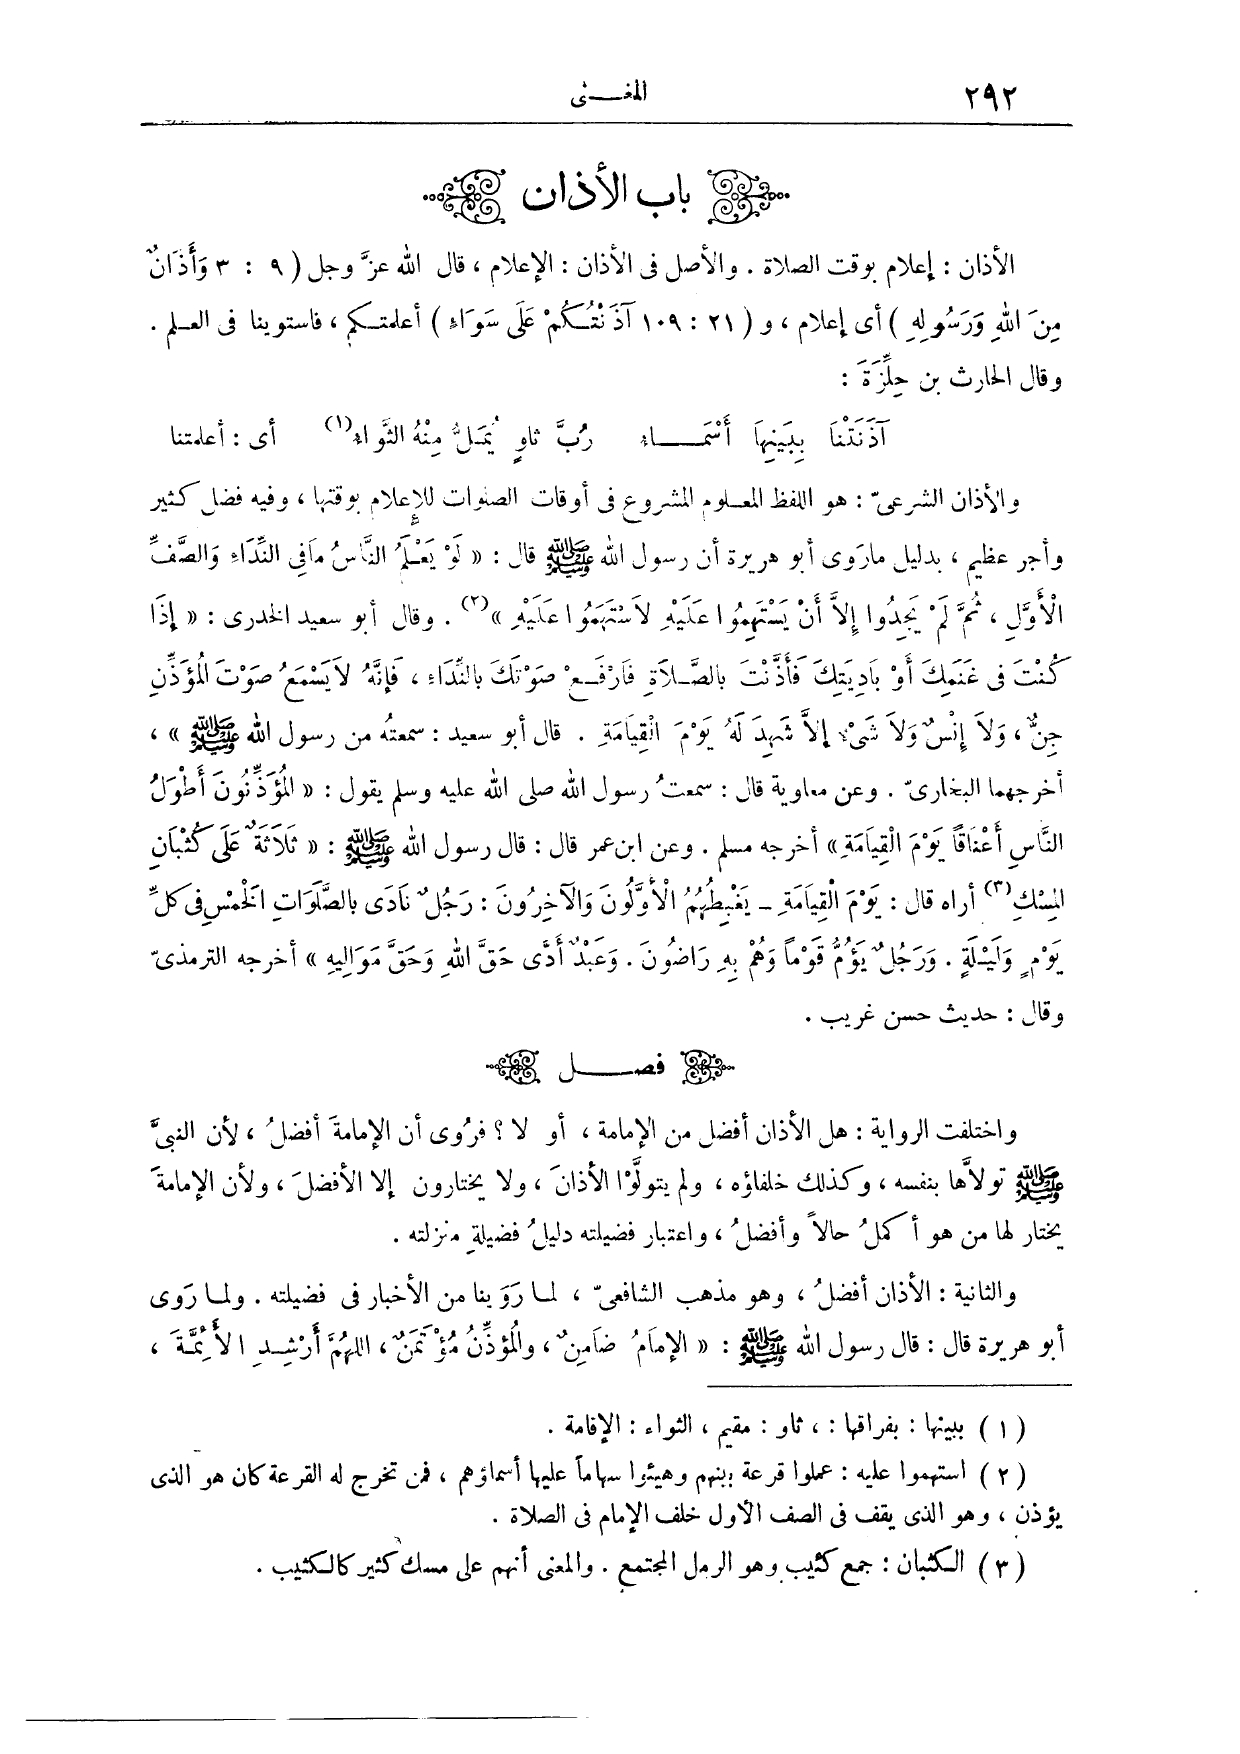 ٢٩٢
المغـــنى
باب الأذان
الأذان : إعلام بوقت الصلاة . والأصل فى الأذان : الإعلام ، قال الله عزَّ وجل ( ٩ : ٣ وَأَذَانٌ
مِنَ اللهِ وَرَسُولِهِ ) أى إعلام ، و ( ٢١ : ١٠٩ آذَنْتُكُمْ عَلَى سَوَاءٍ ) أعلمتـكم ، فاستوينا فى العلم .
وقال الحارث بن حِلِّزَةَ :
آذَنَتْنَا بِبَينِهَا أَسْمَـــاء رُبَّ ثاوٍ يُمَلُّ مِنْهُ الثَّواء(١) أى : أعلمتنا
والأذان الشرعىّ : هو اللفظ المعـلوم المشروع فى أوقات الصلوات للإعلام بوقتها ، وفيه فضل كثير
وأجر عظيم ، بدليل مارَوى أبو هريرة أن رسول الله ﷺ قال : « لَوْ يَعْلَمُ النَّاسُ مَافِى النِّدَاءِ وَالصَّفِّ
الْأَوَّلِ ، ثُمَّ لَمْ يَجِدُوا إِلاَّ أَنْ يَسْتَهِمُوا عَلَيْهِ لاَسْتَهَمُوا عَلَيْهِ »(٢) . وقال أبو سعيد الخدرى : « إِذَا
كُنْتَ فى غَنَمِكَ أَوْ بَادِيَتِكَ فَأَذَّنْتَ بالصَّـلاَةِ فَارْفَـعْ صَوْتَكَ بالنِّدَاءِ ، فَإِنَّهُ لاَيَسْمَعُ صَوْتَ الْمُؤَذِّنِ
جِنٌّ ، وَلاَ إِنْسٌ وَلاَ شَىْءٌ إِلاَّ شَهِدَ لَهُ يَوْمَ الْقِيَامَةِ . قال أبو سعيد : سمعتُه من رسول الله ﷺ » ،
أخرجهما البخارىّ . وعن معاوية قال : سمعتُ رسول الله صلى الله عليه وسلم يقول : « الْمُؤَذِّنُونَ أَطْوَلُ
النَّاسِ أَعْنَاقًا يَوْمَ الْقِيَامَةِ » أخرجه مسلم . وعن ابن عمر قال : قال رسول الله ﷺ : « ثَلَاثَةٌ عَلَى كُثْبَانِ
الْمِسْكِ(٣) أراه قال : يَوْمَ الْقِيَامَةِ ـ يَغْبِطُهُمُ الْأَوَّلُونَ وَالْآخِرُونَ : رَجُلٌ نَادَى بالصَّلَوَاتِ الْخَمْسِ فى كلِّ
يَوْمٍ وَلَيْـلَةٍ . وَرَجُلٌ يَؤُمُّ قَوْماً وَهُمْ بِهِ رَاضُونَ . وَعَبْدٌ أَدَّى حَقَّ اللهِ وَحَقَّ مَوَالِيهِ » أخرجه الترمذىّ
وقال : حديث حسن غريب .
فصــــل
واختلفت الرواية : هل الأذان أفضل من الإمامة ، أو لا ؟ فرُوى أن الإمامةَ أفضلُ ، لأن النبىَّ
ﷺ تولاَّها بنفسه ، وكذلك خلفاؤه ، ولم يتولَّوْا الأذانَ ، ولا يختارون إلا الأفضلَ ، ولأن الإمامةَ
يختار لها من هو أكملُ حالاً وأفضلُ ، واعتبار فضيلته دليلُ فضيلةِ منزلته .
والثانية : الأذان أفضلُ ، وهو مذهب الشافعىّ ، لما رَوَينا من الأخبار فى فضيلته . ولما رَوى
أبو هريرة قال : قال رسول الله ﷺ : « الإمَامُ ضَامِنٌ ، والْمُؤَذِّنُ مُؤْتَمَنٌ ، اللهُمَّ أَرْشِـدِ الأَئِمَّةَ ،
( ١ ) ببينها : بفراقها : ، ثاو : مقيم ، الثواء : الإقامة .
( ٢ ) استهموا عليه : عملوا قرعة بينهم وهيئوا سهاماً عليها أسماؤهم ، فمن تخرج له القرعة كان هو الذى
يؤذن ، وهو الذى يقف فى الصف الأول خلف الإمام فى الصلاة .
( ٣ ) الكثبان : جمع كثيب وهو الرمل المجتمع . والمعنى أنهم على مسك كثير كالكثيب .